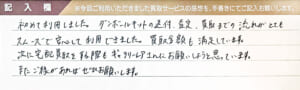 記入欄
※今回ご利用いただきました買取サービスの感想を、手書きにてご記入お願いします。
初めて利用しました。ダンボールキットの送付、査定、買取までの流れがとても
スムーズで安心して利用できました。買取金額も満足しています。
次に宅配買取を利用する際もギャラリーレアさんにお願いしようと思っています。
またご縁があればぜひお願いします。